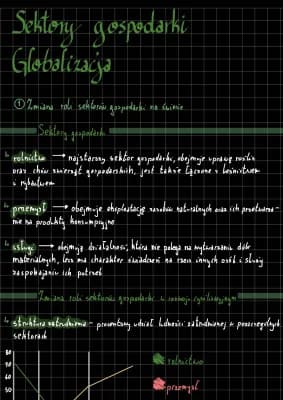 Sektory gospodarki
Globalizacja
① Zmiana roli sektorów gospodarki na świecie
Sektory gospodarki
↳ rolnictwo → najstarszy sektor gospodarki, obejmuje uprawę roślin
oraz chów zwierząt gospodarskich, jest także łączone z leśnictwem
i rybactwem
↳ przemysł → obejmuje eksploatację zasobów naturalnych oraz ich przetwarza-
nie na produkty konsumpcyjne
↳ usługi → obejmują działalność, która nie polega na wytwarzaniu dóbr
materialnych, lecz ma charakter świadczeń na rzecz innych osób i służy
zaspokajaniu ich potrzeb
Zmiana roli sektorów gospodarki w rozwoju cywilizacyjnym
↳ struktura zatrudnienia - procentowy udział ludności zatrudnionej w poszczególnych
sektorach
80
70
60
50
rolnictwo
przemysł